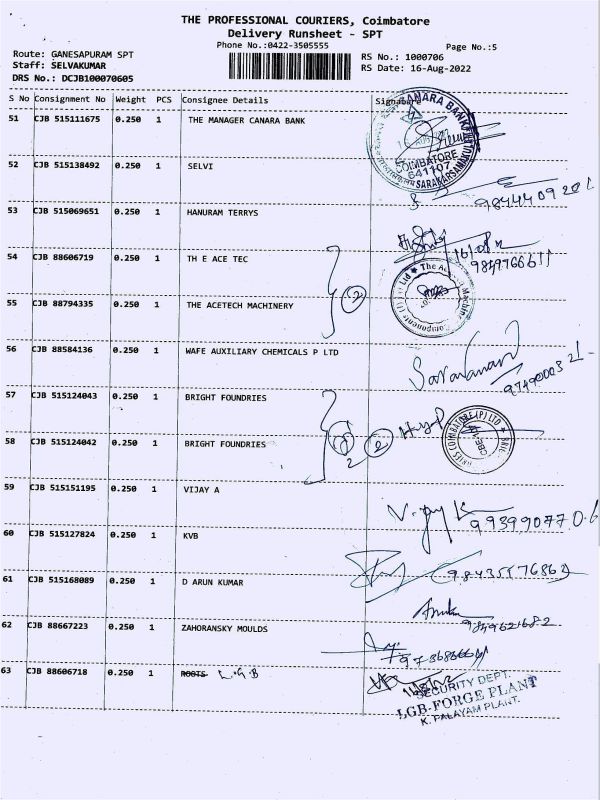 THE PROFESSIONAL COURIERS, Coimbatore
Delivery Runsheet - SPT
Phone No.:0422-3505555
Page No.:5
Route: GANESAPURAM SPT
Staff: SELVAKUMAR
DRS No.: DCJB100070605
RS No.: 1000706
RS Date: 16-Aug-2022
S No Consignment No Weight PCS Consignee Details Signature
51 CJB 515111675 0.250 1 THE MANAGER CANARA BANK
CANARA BANK
COIMBATORE
641107
52 CJB 515138492 0.250 1 SELVI
53 CJB 515069651 0.250 1 HANURAM TERRYS
54 CJB 88606719 0.250 1 TH E ACE TEC
55 CJB 88794335 0.250 1 THE ACETECH MACHINERY
2
56 CJB 88584136 0.250 1 WAFE AUXILIARY CHEMICALS P LTD
Saravanan
57 CJB 515124043 0.250 1 BRIGHT FOUNDRIES
58 CJB 515124042 0.250 1 BRIGHT FOUNDRIES
2 2
59 CJB 515151195 0.250 1 VIJAY A
60 CJB 515127824 0.250 1 KVB
61 CJB 515168089 0.250 1 D ARUN KUMAR
62 CJB 88667223 0.250 1 ZAHORANSKY MOULDS
63 CJB 88606718 0.250 1 ROOTS L.G.B
SECURITY DEPT.
LGB-FORGE PLANT
K. PALAYAM PLANT.